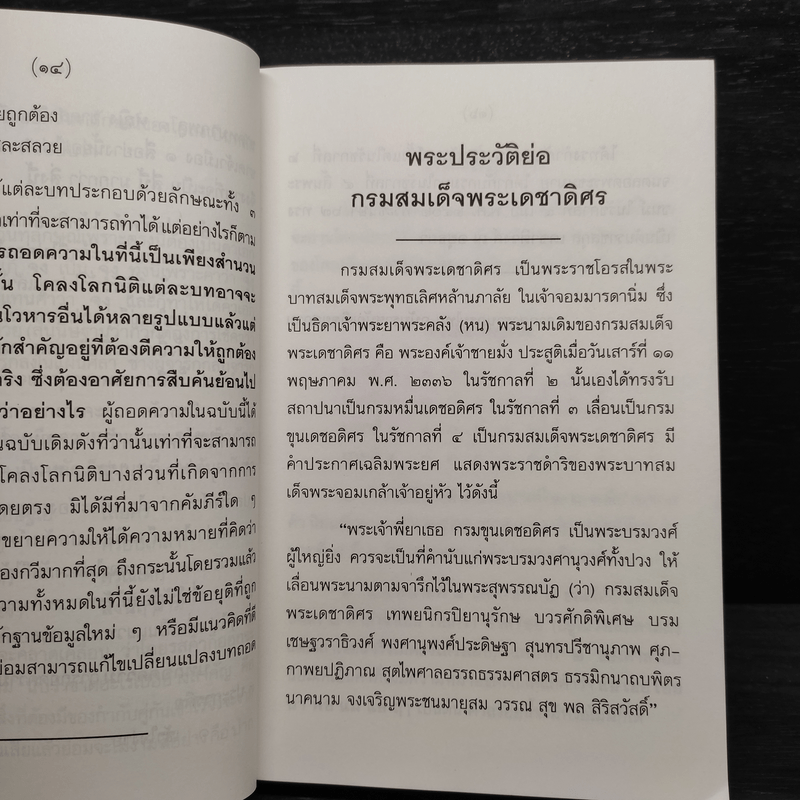 (๑๔)
ยถูกต้อง
สละสลวย
แต่ละบทประกอบด้วยลักษณะทั้ง ๓
เท่าที่จะสามารถทำได้ แต่อย่างไรก็ตาม
รถอดความในที่นี้เป็นเพียงสำนวน
โคลงโลกนิติแต่ละบทอาจจะ
โวหารอื่นได้หลายรูปแบบแล้วแต่
สำคัญอยู่ที่ต้องตีความให้ถูกต้อง
ริง ซึ่งต้องอาศัยการสืบค้นย้อนไป
ว่าอย่างไร ผู้ถอดความในฉบับนี้ได้
นฉบับเดิมดังที่ว่านั้นเท่าที่จะสามารถ
โคลงโลกนิติบางส่วนที่เกิดจากการ
ดยตรง มิได้มีที่มาจากคัมภีร์ใด ๆ
ขยายความให้ได้ความหมายที่คิดว่า
องกวีมากที่สุด ถึงกระนั้นโดยรวมแล้ว
วามทั้งหมดในที่นี้ยังไม่ใช่ข้อยุติที่ถูก
ักฐานข้อมูลใหม่ ๆ หรือมีแนวคิดที่ดี
ย่อมสามารถแก้ไขเปลี่ยนแปลงบทถอด
พระประวัติย่อ
กรมสมเด็จพระเดชาดิศร
กรมสมเด็จพระเดชาดิศร เป็นพระราชโอรสในพระ
บาทสมเด็จพระพุทธเลิศหล้านภาลัย ในเจ้าจอมมารดานิ่ม ซึ่ง
เป็นธิดาเจ้าพระยาพระคลัง (หน) พระนามเดิมของกรมสมเด็จ
พระเดชาดิศร คือ พระองค์เจ้าชายมั่ง ประสูติเมื่อวันเสาร์ที่ ๑๑
พฤษภาคม พ.ศ. ๒๓๓๖ ในรัชกาลที่ ๒ นั้นเองได้ทรงรับ
สถาปนาเป็นกรมหมื่นเดชอดิศร ในรัชกาลที่ ๓ เลื่อนเป็นกรม
ขุนเดชอดิศร ในรัชกาลที่ ๔ เป็นกรมสมเด็จพระเดชาดิศร มี
คำประกาศเฉลิมพระยศ แสดงพระราชดำริของพระบาทสม
เด็จพระจอมเกล้าเจ้าอยู่หัว ไว้ดังนี้
“พระเจ้าพี่ยาเธอ กรมขุนเดชอดิศร เป็นพระบรมวงศ์
ผู้ใหญ่ยิ่ง ควรจะเป็นที่คำนับแก่พระบรมวงศานุวงศ์ทั้งปวง ให้
เลื่อนพระนามตามจารึกไว้ในพระสุพรรณบัฏ (ว่า) กรมสมเด็จ
พระเดชาดิศร เทพยนิกรปิยานุรักษ บวรศักดิพิเศษ บรม
เชษฐวราธิวงศ์ พงศานุพงศ์ประดิษฐา สุนทรปรีชานุภาพ ศุภ-
กาพยปฏิภาณ สุตไพศาลอรรถธรรมศาสตร ธรรมิกนาถบพิตร
นาคนาม จงเจริญพระชนมายุสม วรรณ สุข พล สิริสวัสดิ์”